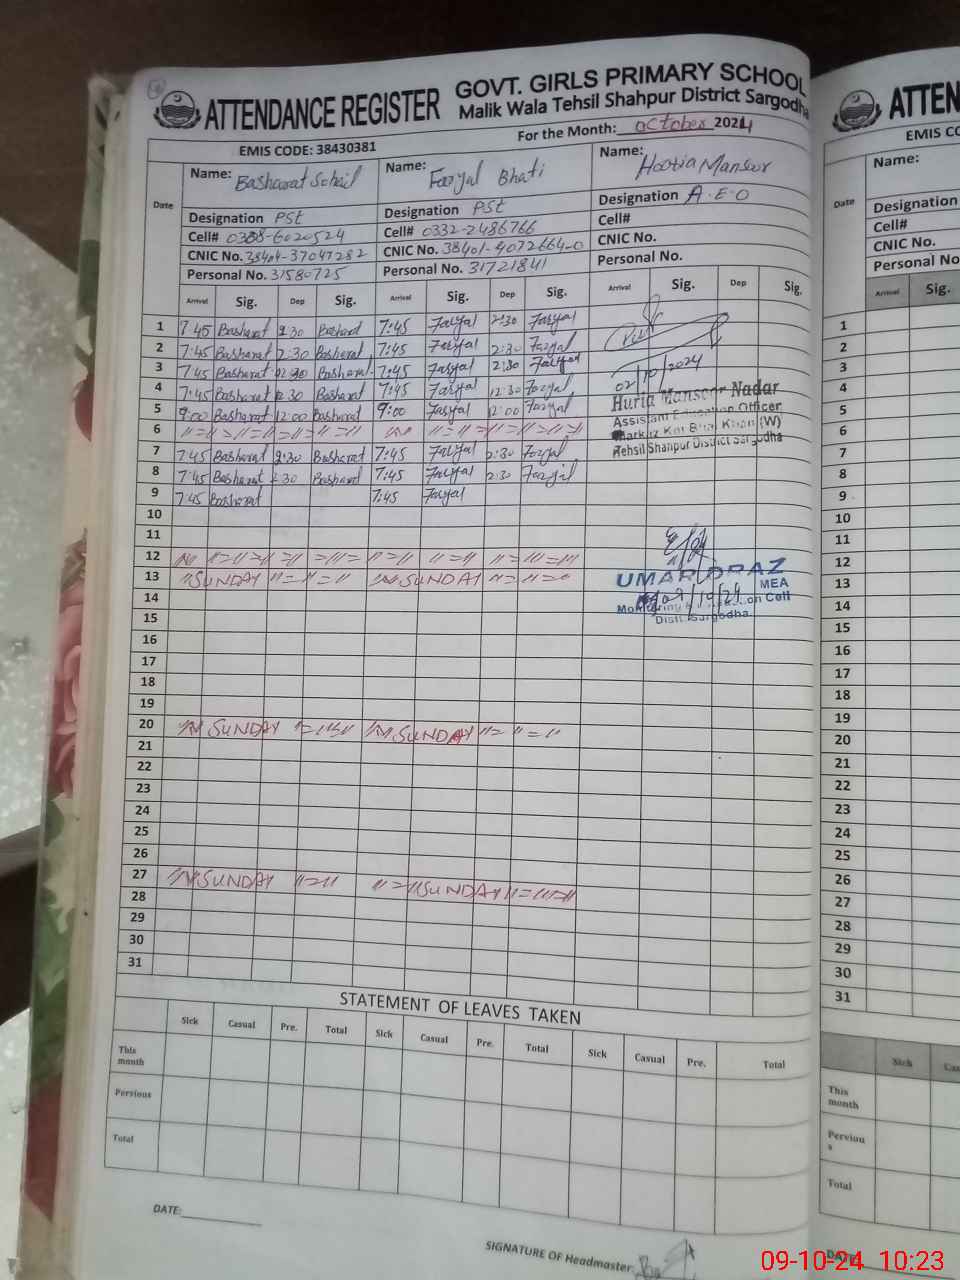 ATTENDANCE REGISTER
GOVT. GIRLS PRIMARY SCHOOL
Malik Wala Tehsil Shahpur District Sargodha
EMIS CODE: 38430381
For the Month: October 2024
Date
Name: Basharat Sohail
Name: Faryal Bhati
Name: Hooria Mansoor
Designation PSt
Designation PSt
Designation A.E.O
Cell# 0332-2486766
Cell#
CNIC No. 38401-4072664-0
CNIC No.
Personal No. 31580725
Personal No. 31721841
Personal No.
Arrival Sig. Dep Sig. Arrival Sig. Dep Sig. Arrival Sig. Dep Sig.
1 7:45 Basharat 2:30 Basharat 7:45 Faryal 2:30 Faryal
2 7:45 Basharat 2:30 Basharat 7:45 Faryal 2:30 Faryal
3 7:45 Basharat Basharat 7:45 Faryal 2:30 Faryal
4 7:45 Basharat 12:30 Basharat 7:45 Faryal 12:30 Faryal
5 9:00 Basharat 12:00 Basharat 9:00 Faryal 12:00 Faryal
6
7 7:45 Basharat 2:30 Basharat 7:45 Faryal 2:30 Faryal
8 7:45 Basharat 2:30 Basharat 7:45 Faryal 2:30 Faryal
9 7:45 Basharat 7:45 Faryal
02/10/2024
Huria Mansoor Nadar
Assistant Education Officer
Markaz Kot Bhai Khan (W)
Tehsil Shahpur District Sargodha
10
11
12
13 SUNDAY SUNDAY
UMAR DRAZ
MEA
09/10/24
Monitoring & Evaluation Cell
Distt. Sargodha
14
15
16
17
18
19
20 SUNDAY SUNDAY
21
22
23
24
25
26
27 SUNDAY SUNDAY
28
29
30
31
STATEMENT OF LEAVES TAKEN
Sick Casual Pre. Total Sick Casual Pre. Total Sick Casual Pre. Total
This month
Pervious
Total
DATE:
SIGNATURE OF Headmaster:
ATTEN
EMIS CO
Date
Name:
Designation
Cell#
CNIC No.
Personal No.
Arrival Sig.
1
2
3
4
5
6
7
8
9
10
11
12
13
14
15
16
17
18
19
20
21
22
23
24
25
26
27
28
29
30
31
Sick Cas
This month
Perviou s
Total
DATE:
09-10-24 10:23